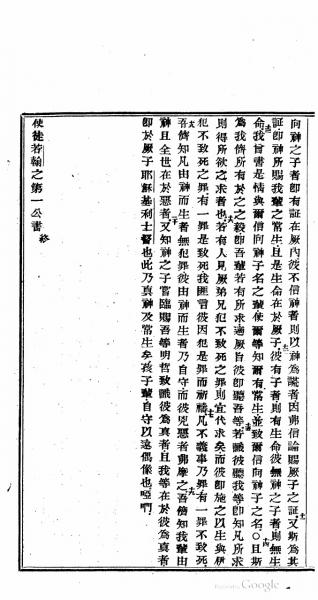 向神之子者即有証在厥內彼不信神者則以神為謊者因弗信論賜厥子之証又斯為其
証即神所賜我輩之常生且是生命在於厥子彼有子者則有生命彼無神之子者則無生
命我曾書是情與爾信向神子名之輩使爾等知爾有常生並致爾信向神子之名○且斯
為我儕所有於之之毅即吾輩若有所求遍厥旨彼即聽吾等若識彼聽我等即知凡所求
則得所欲之求者也若有人見厥弟兄犯不致死之罪則宜代求矣而彼即施之以生與伊
犯不致死之罪有一罪是致死我匪言彼因犯是罪而祈禱凡不義事乃罪有一罪不致死
吾儕知凡由神而生者無犯罪彼由神而生者乃自守而彼兇惡者弗摩之吾儕知我輩由
神且全世在於惡者又知神之子嘗臨賜吾等明哲致識彼為真者且我等在於彼為真者
即於厥子耶穌基利士督也此乃真神及常生矣孩子輩自守以遠偶像也啞𠵽
使徒若翰之第一公書 終
Google